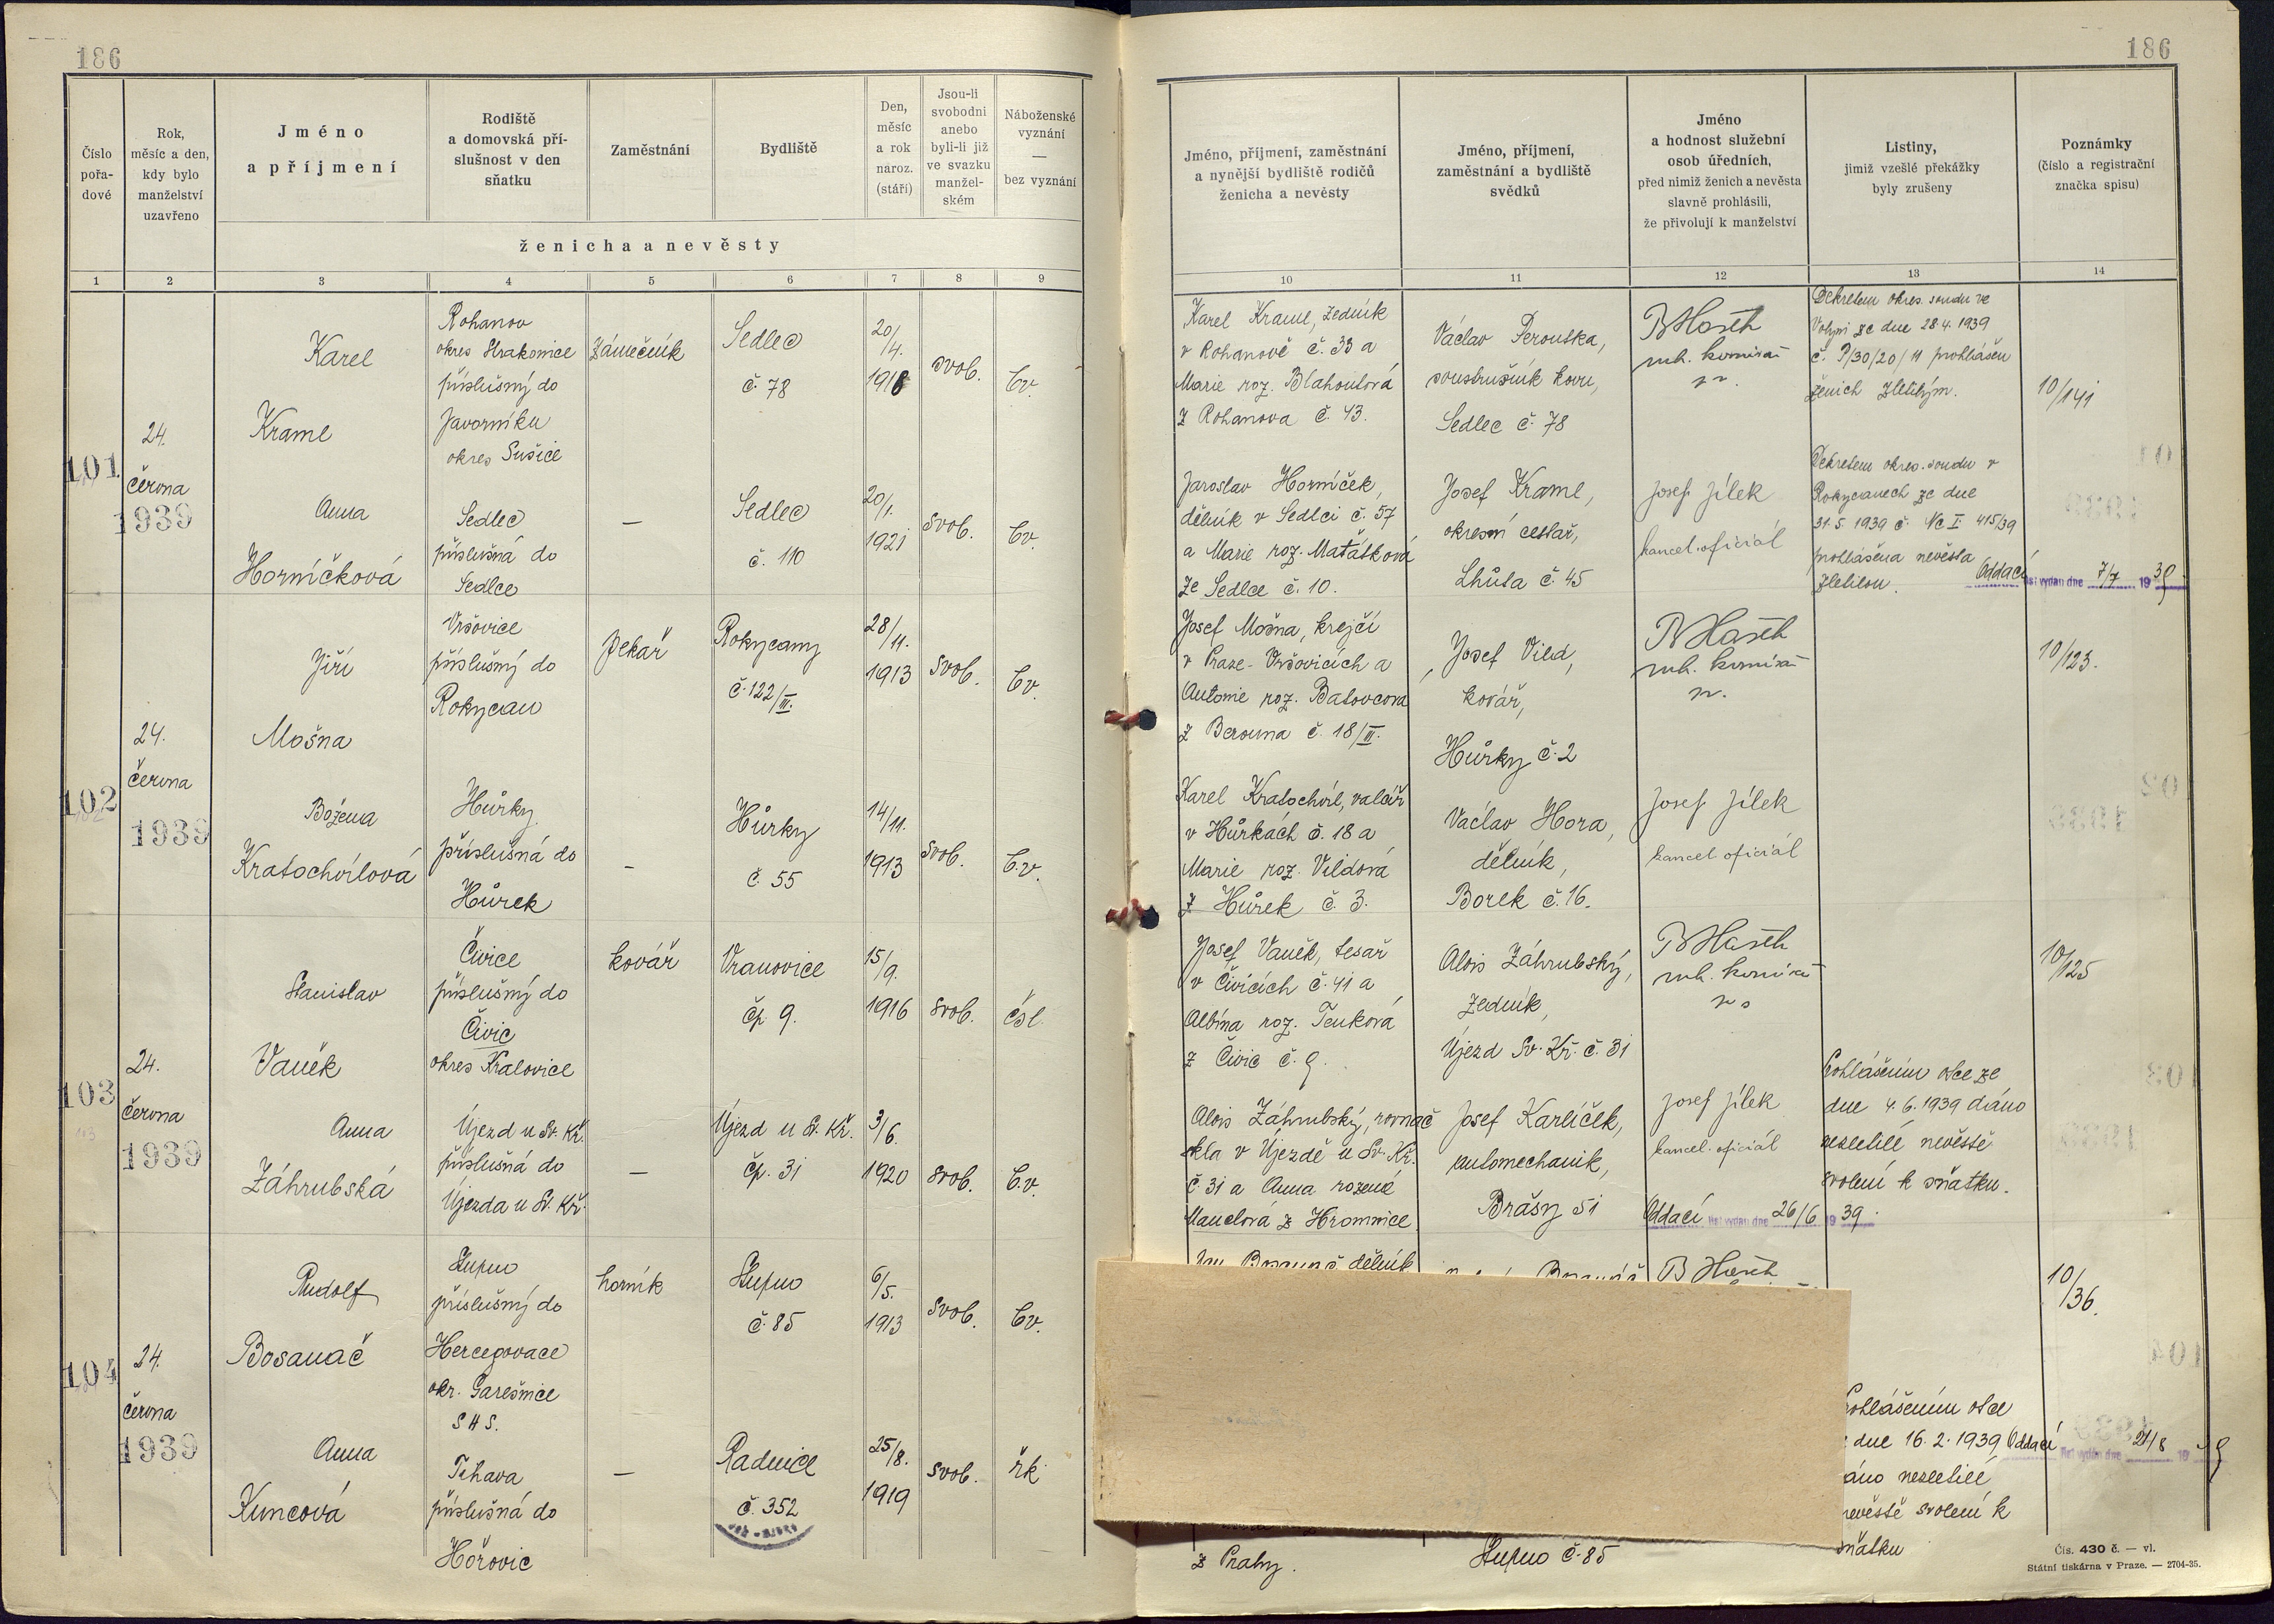 186
186
Číslo
pořa-
dové
Rok,
měsíc a den,
kdy bylo
manželství
uzavřeno
Jméno
a příjmení
Rodiště
a domovská pří-
slušnost v den
sňatku
Zaměstnání
Bydliště
Den,
měsíc
a rok
naroz.
(stáří)
Jsou-li
svobodni
anebo
byli-li již
ve svazku
manžel-
ském
Náboženské
vyznání
—
bez vyznání
ženicha a nevěsty
Jméno, příjmení, zaměstnání
a nynější bydliště rodičů
ženicha a nevěsty
Jméno, příjmení,
zaměstnání a bydliště
svědků
Jméno
a hodnost služební
osob úředních,
před nimiž ženich a nevěsta
slavně prohlásili,
že přivolují k manželství
Listiny,
jimiž vzešlé překážky
byly zrušeny
Poznámky
(číslo a registrační
značka spisu)
1 2 3 4 5 6 7 8 9
10 11 12 13 14
101
24.
června
1939
Karel
Kraml
Rohanov
okres Strakonice
příslušný do
Javorníku
okres Sušice
Zámečník
Sedlec
č. 78
20/4.
1918
svob.
bv.
Anna
Horníčková
Sedlec
příslušná do
Sedlce
—
Sedlec
č. 110
20/1.
1921
svob.
bv.
Karel Kraml, zedník
v Rohanově č. 33 a
Marie roz. Blahoutová
z Rohanova č. 43.
Jaroslav Horníček,
dělník v Sedlci č. 57
a Marie roz. Maťátková
ze Sedlce č. 10.
Václav Perouška,
soustružník kovu,
Sedlec č. 78
Josef Kraml,
okresní cestář,
Lhůta č. 45
Josef Jílek
kancel. oficiál
Dekretem okres. soudu ve
Volyni ze dne 28.4. 1939
č. P/30/20/11 prohlášen
ženich zletilým.
Dekretem okres. soudu v
Rokycanech ze dne
31.5. 1939 č. Nc I 415/39
prohlášena nevěsta
zletilou.
10/141
Oddací list vydán dne 7/7 1939
102
24.
června
1939
Jiří
Mošna
Vršovice
příslušný do
Rokycan
pekař
Rokycany
č. 122/III.
28/11.
1913
svob.
bv.
Božena
Kratochvílová
Hůrky
příslušná do
Hůrek
-
Hůrky
č. 55
14/11.
1913
svob.
b.v.
Josef Mošna, krejčí
v Praze-Vršovicích a
Antonie roz. Batovcová
z Berouna č. 18/II.
Karel Kratochvíl, valcíř
v Hůrkách č. 18 a
Marie roz. Vildová
z Hůrek č. 3.
Josef Vild,
kovář,
Hůrky č. 2
Václav Hora,
dělník,
Borek č. 16.
Josef Jílek
kancel. oficiál
10/123.
103
24.
června
1939
Stanislav
Vaněk
Čivice
příslušný do
Čivic
okres Kralovice
kovář
Vranovice
čp 9.
15/9.
1916
svob.
čsl.
Anna
Záhrubská
Újezd u Sv. Kř.
příslušná do
Újezda u Sv. Kř.
—
Újezd u Sv. Kř.
čp. 31
3/6.
1920
svob.
b.v.
Josef Vaněk, tesař
v Čivicích č. 41 a
Albína roz. Tenková
z Čivic č. 9.
Alois Záhrubský, rovnač
skla v Újezdě u Sv. Kř.
č 31 a Anna rozená
Manclová z Hromnice
Alois Záhrubský,
zedník,
Újezd Sv. Kř. č. 31
Josef Karlíček,
automechanik,
Břasy 51
Josef Jílek
kancel. oficiál
Oddací list vydán dne 26/6 1939.
Prohlášením otce ze
dne 4.6.1939 dáno
nezletilé nevěstě
svolení k sňatku.
10/125
104
24.
června
1939
Rudolf
Bosanač
Stupno
příslušný do
Hercegovace
okr. Garešnice
SHS.
horník
Stupno
č. 85
6/5.
1913
svob.
bv.
Anna
Kuncová
Tihava
příslušná do
Hořovic
—
Radnice
č. 352
25/8.
1919
svob.
řk
Bosanač dělník
z Prahy.
Bosanáč
Stupno č. 85
rohlášením otce
dne 16.2.1939
áno nezletilé
nevěstě svolení k
sňatku
10/36.
Oddací list vydán dne 21/8 1939
Čís. 430 č. — vl.
Státní tiskárna v Praze. — 2704-35.